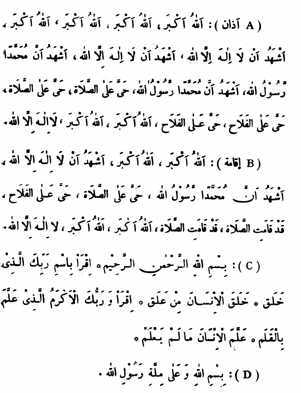 ( A آذان ) : اَللهُ اَكْبَر ، اَللهُ اَكْبَر ، اَللهُ اَكْبَر ، اَللهُ اَكْبَر ،
اَشْهَدُ اَنْ لَا اِلٰهَ اِلَّا الله ، اَشْهَدُ اَنْ لَا اِلٰهَ اِلَّا الله ، اَشْهَدُ اَنَّ مُحَمَّدًا
رَّسُوْلُ الله، اَشْهَدُ اَنَّ مُحَمَّدًا رَّسُوْلُ الله، حَيَّ عَلَى الصَّلَاة، حَيَّ عَلَى الصَّلَاة،
حَيَّ عَلَى الفَلَاح ، حَيَّ عَلَى الفَلَاح ، اَللهُ اَكْبَر، اَللهُ اَكْبَر ، لَا اِلٰهَ اِلَّا الله.
( B إقامة ) : اَللهُ اَكْبَر ، اَللهُ اَكْبَر ، اَشْهَدُ اَنْ لَا اِلٰهَ اِلَّا الله ،
اَشْهَدُ اَنَّ مُحَمَّدًا رَّسُوْلُ الله ، حَيَّ عَلَى الصَّلَاة ، حَيَّ عَلَى الفَلَاح ،
قَدْ قَامَتِ الصَّلَاة ، قَدْ قَامَتِ الصَّلَاة ، اَللهُ اَكْبَر ، اَللهُ اَكْبَر ، لَا اِلٰهَ اِلَّا الله.
( C ) : بِسْمِ اللهِ الرَّحْمٰنِ الرَّحِيْمِ * اِقْرَأْ بِاسْمِ رَبِّكَ الَّذِيْ
خَلَقَ * خَلَقَ الْاِنْسَانَ مِنْ عَلَقٍ * اِقْرَأْ وَ رَبُّكَ الْاَكْرَمُ الَّذِيْ عَلَّمَ
بِالْقَلَمِ * عَلَّمَ الْاِنْسَانَ مَا لَمْ يَعْلَمْ *
( D ) : بِسْمِ اللهِ وَ عَلٰى مِلَّةِ رَسُوْلِ الله .